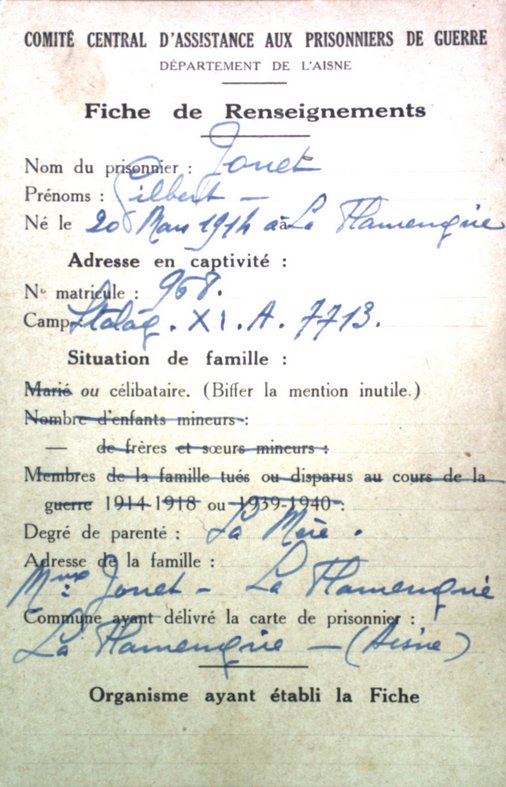 COMITÉ CENTRAL D'ASSISTANCE AUX PRISONNIERS DE GUERRE
DÉPARTEMENT DE L'AISNE
Fiche de Renseignements
Nom du prisonnier : Jonet
Prénoms : Gilbert —
Né le 20 Mars 1914 à La Flamengrie
Adresse en captivité :
No matricule : 968.
Camp Stalag . XI . A . 7713.
Situation de famille :
Marié ou célibataire. (Biffer la mention inutile.)
Nombre d'enfants mineurs :
— de frères et sœurs mineurs :
Membres de la famille tués ou disparus au cours de la
guerre 1914-1918 ou 1939-1940 :
Degré de parenté : La Mère .
Adresse de la famille :
Mme Jonet - La Flamengrie
Commune ayant délivré la carte de prisonnier :
La Flamengrie — (Aisne)
Organisme ayant établi la Fiche